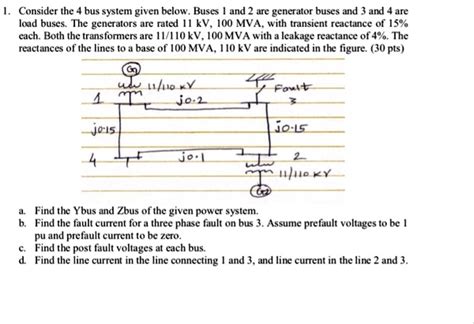 1. Consider the 4 bus system given below. Buses 1 and 2 are generator buses and 3 and 4 are
load buses. The generators are rated 11 kV, 100 MVA, with transient reactance of 15%
each. Both the transformers are 11/110 kV, 100 MVA with a leakage reactance of 4%. The
reactances of the lines to a base of 100 MVA, 110 kV are indicated in the figure. (30 pts)
G1
11/110 KV
Fault
1
j0.2
3
j0.15
j0.15
4
j0.1
2
11/110 KV
G2
a. Find the Ybus and Zbus of the given power system.
b. Find the fault current for a three phase fault on bus 3. Assume prefault voltages to be 1
pu and prefault current to be zero.
c. Find the post fault voltages at each bus.
d. Find the line current in the line connecting 1 and 3, and line current in the line 2 and 3.